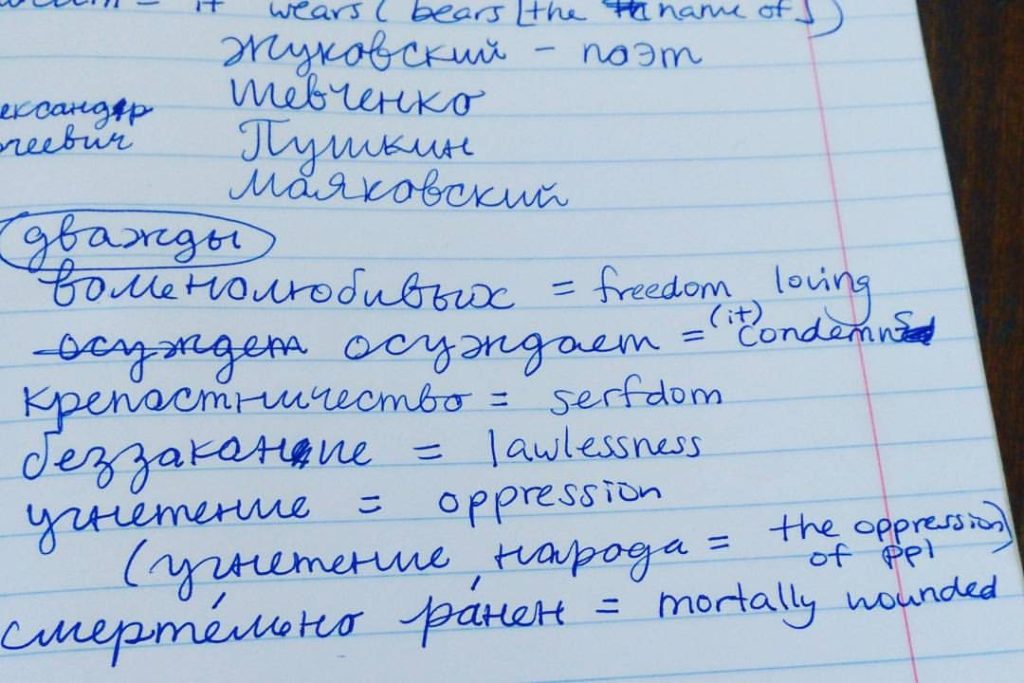 = it wears ( bears [the name of] )
Жуковский - поэт
Шевченко
ександр Пушкин
геевич Маяковский
дважды
воменолюбивых = freedom loving
осуждет осуждает = (it) condemns
крепостничество = serfdom
беззакание = lawlessness
угнетение = oppression
(угнетение народа = the oppression of ppl)
смерте́льно ра́нен = mortally wounded